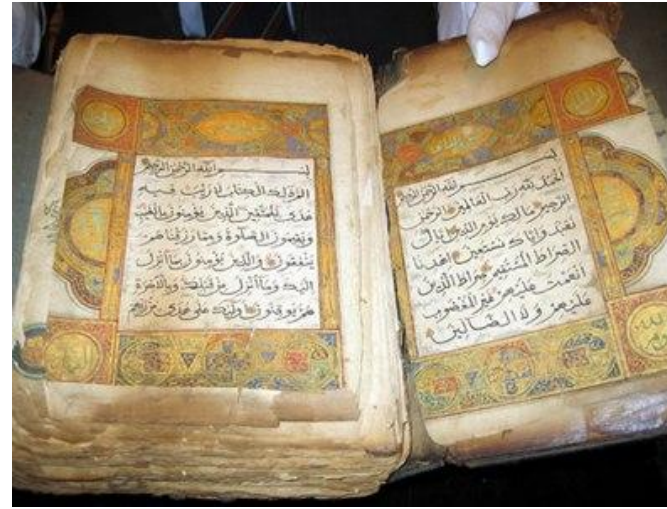 بسم الله الرحمن الرحيم
الحمد لله رب العالمين الرحمن
الرحيم مالك يوم الدين اياك
نعبد واياك نستعين اهدنا
الصراط المستقيم صراط الذين
انعمت عليهم غير المغضوب
عليهم ولا الضالين
بسم الله الرحمن الرحيم
الم ذلك الكتاب لا ريب فيه
هدى للمتقين الذين يؤمنون بالغيب
ويقيمون الصلوة ومما رزقناهم
ينفقون والذين يؤمنون بما أنزل
اليك وما أنزل من قبلك وبالآخرة
هم يوقنون اولئك على هدى من ربهم